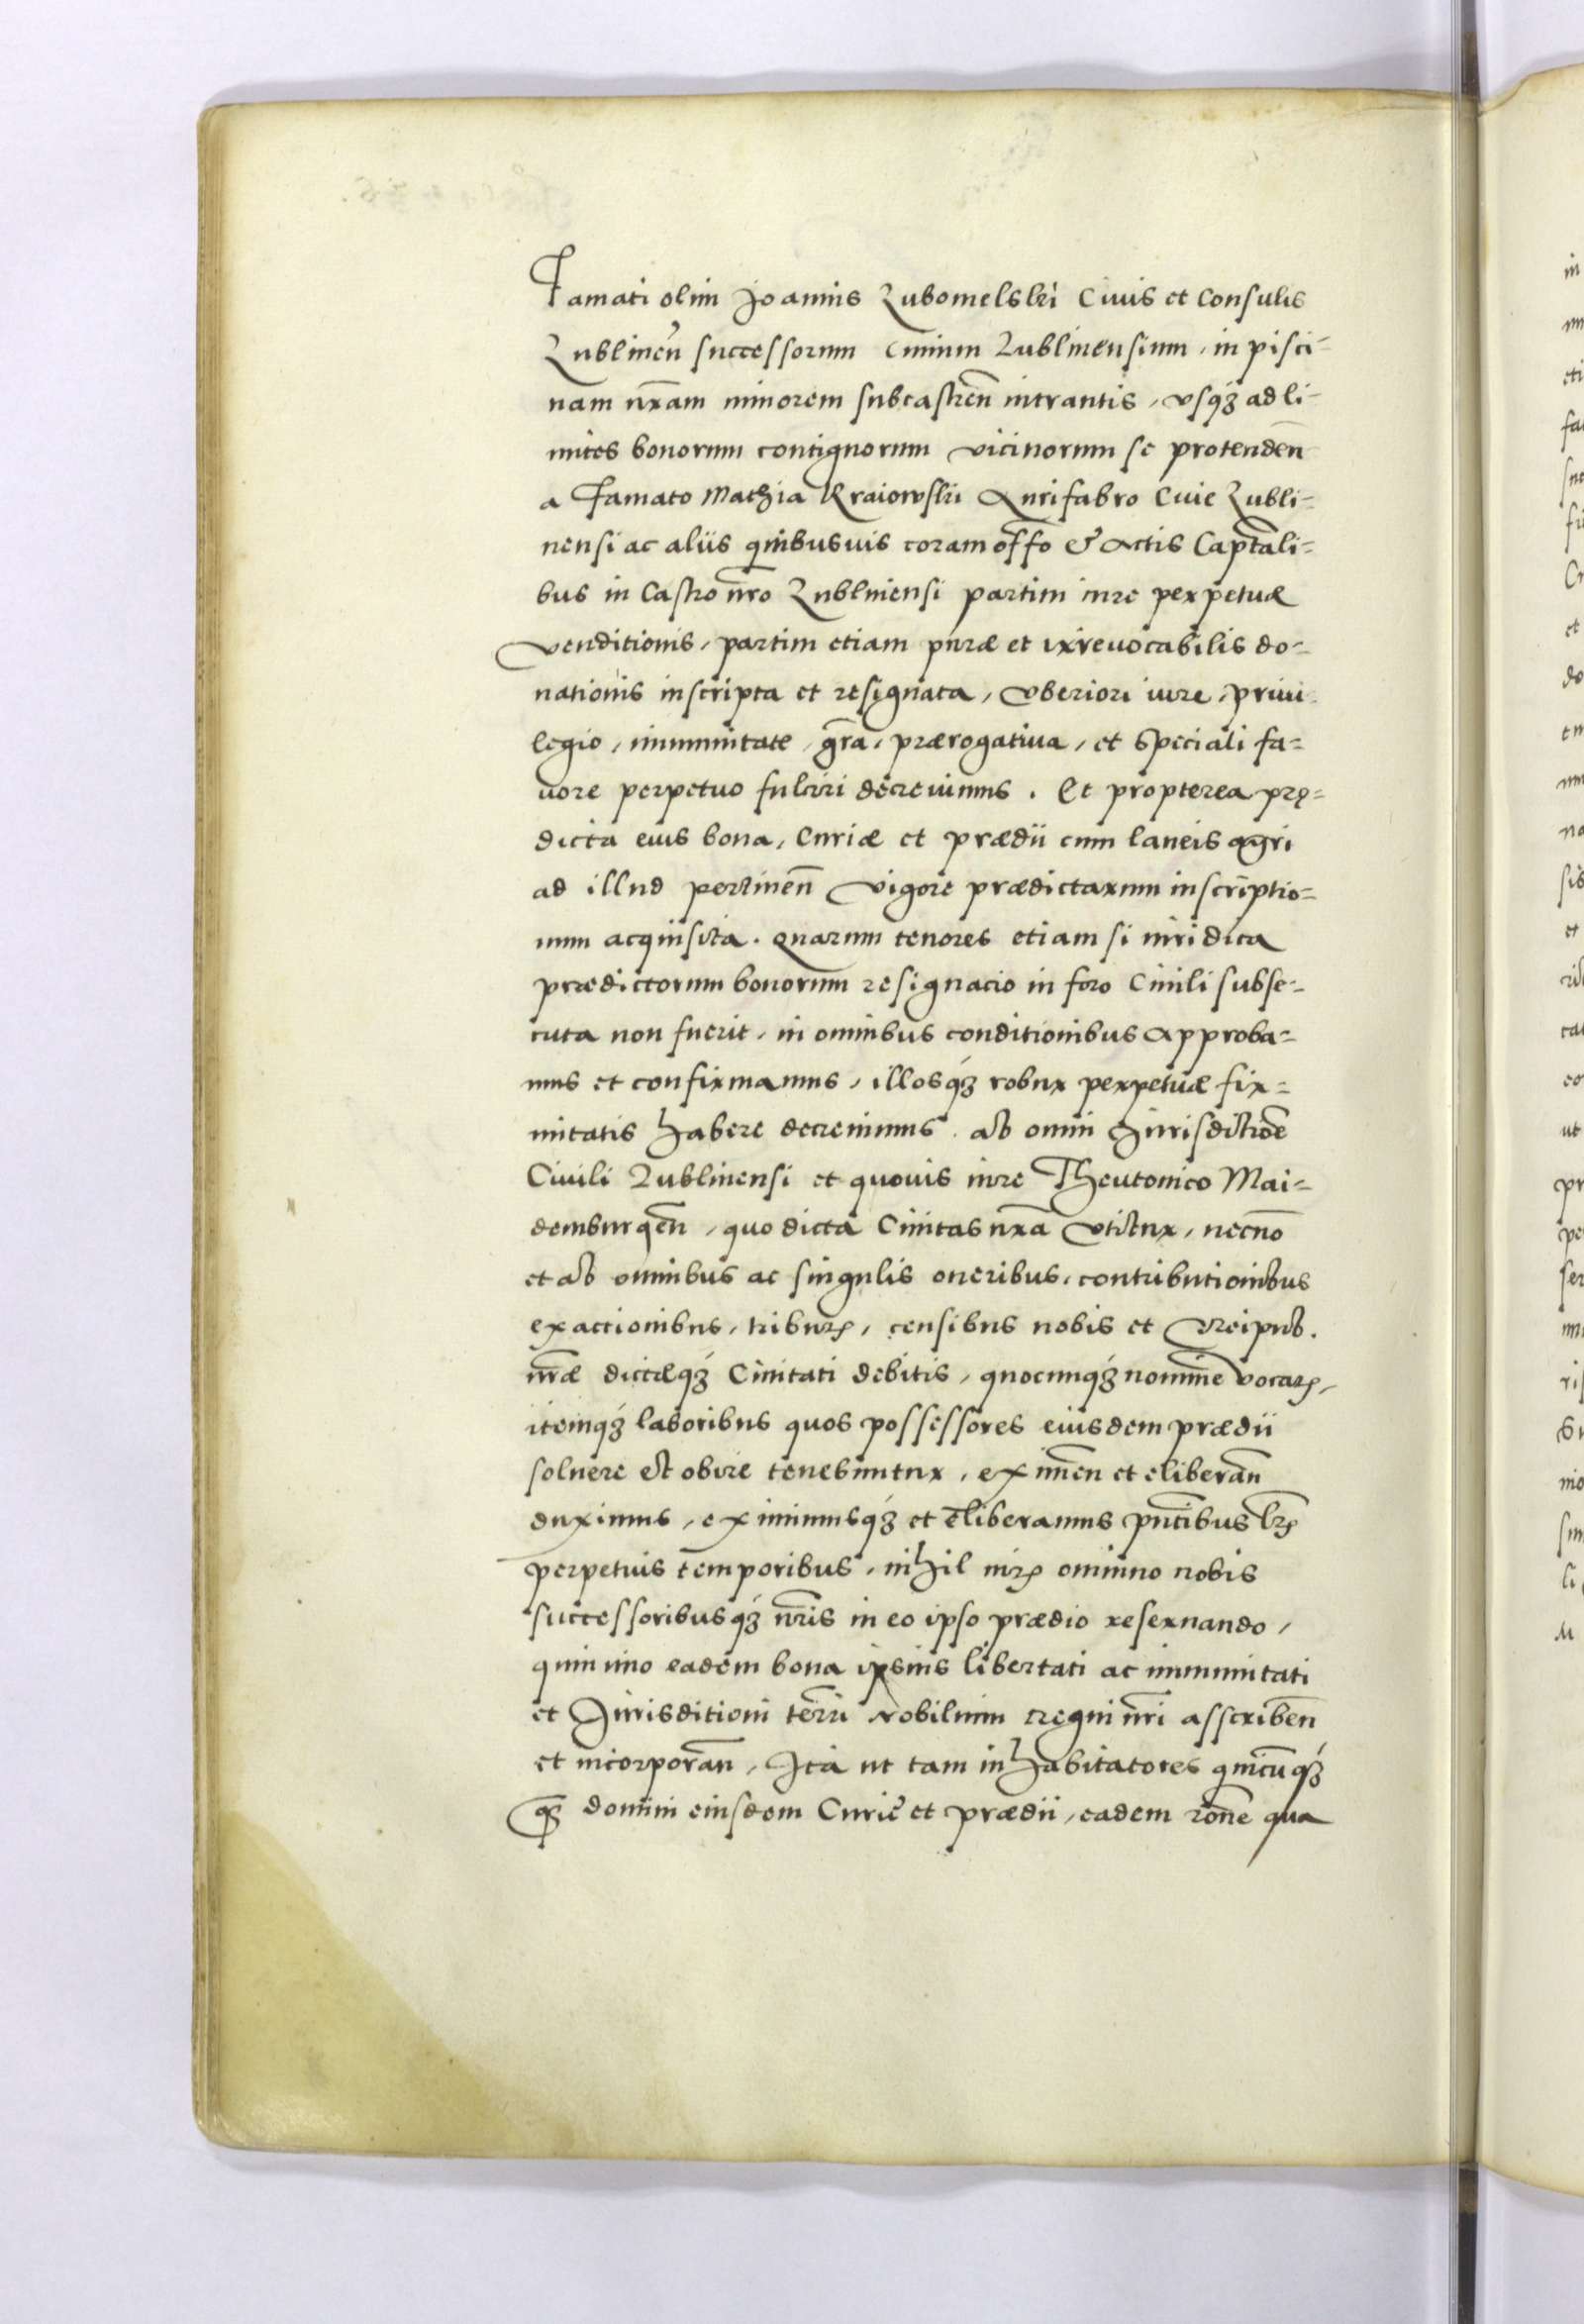 Famati olim Joannis Lubomelski Ciuis et Consulis
Lublineñ successorum Ciuium Lublinensium, in pisci-
nam nr̃am minorem subcastreñ intrantis, vsqȝ ad li-
mites bonorum contiguorum vicinorum se protendeñ
a Famato Mathia Kraiowski Aurifabro Ciue Lubli-
nensi ac aliis quibusuis coram offõ & Actis Captãli-
bus in Castro nr̃o Lublinensi partim iure perpetuæ
venditionis, partim etiam puræ et irreuocabilis do-
nationis inscripta et resignata, vberiori iure, priui-
legio, immunitate, gr̃a, prærogatiua, et speciali fa-
uore perpetuo fulciri decreuimus. Et propterea prę-
dicta eius bona, Curiæ et prædii cum laneis agri
ad illud pertineñ vigore prædictarum inscriptio-
num acquisita. quarum tenores etiam si iuridica
prædictorum bonorum resignacio in foro Ciuili subse-
cuta non fuerit, in omnibus conditionibus approba-
mus et confirmamus, illosqȝ robur perpetuæ fir-
mitatis habere decreuimus. ab omni Jurisdictiõe
Ciuili Lublinensi et quouis iure Theutonico Mai-
demburgeñ, quo dicta Ciuitas nr̃a vtitur, necnõ
et ab omnibus ac singulis oneribus, contributionibus
exactionibus, tributꝭ, censibus nobis et Reipub.
nr̃æ dictæqȝ Ciuitati debitis, quocunqȝ nomine vocatꝭ,
itemqȝ laboribus quos possessores eiusdem prædii
soluere et obire tenebuntur, eximeñ et eliberañ
duximus, eximimusqȝ et eliberamus pñtibus lr̃ꝭ
perpetuis temporibus, nihil iurꝭ omnino nobis
successoribusqȝ nr̃is in eo ipso prædio reseruando,
quin imo eadem bona ipsius libertati ac immunitati
et Jurisditioni terr̃i Nobilium regni nr̃i asscribeñ
et incorporañ, Ita ut tam inhabitatores quicũqȝ
qȝ domini eiusdem Curię et prædii, eadem rõne qua